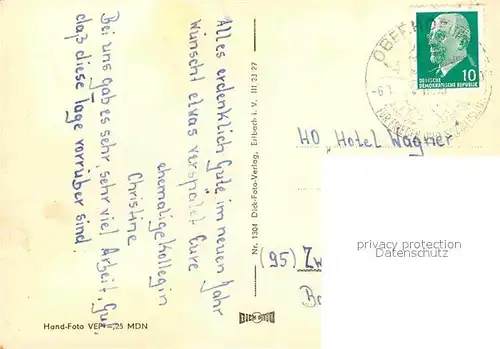 Alles erdenklich Gute im neuen Jahr
Wünscht etwas verspätet Eure
ehemalige Kollegin
Christine
Bei uns gab es sehr, sehr viel Arbeit, Gut
daß diese Tage vorrüber sind!
Nr. 1304 Dick-Foto-Verlag, Erlbach i. V. III 23 27
DICK
Hand-Foto VEP =,25 MDN
OBERHOF
10
DEUTSCHE
DEMOKRATISCHE REPUBLIK
HO Hotel Wagner
privacy protection
Datenschutz
(95) Zw